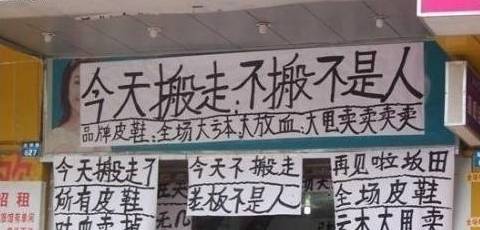 今天搬走:不搬不是人
品牌皮鞋:全场大亏本大放血:大甩卖卖卖卖
627
今天搬走了
所有皮鞋
吐血卖掉
今天不搬走
老板不是人
再见啦坂田
全场皮鞋
亏本大甩卖
招租